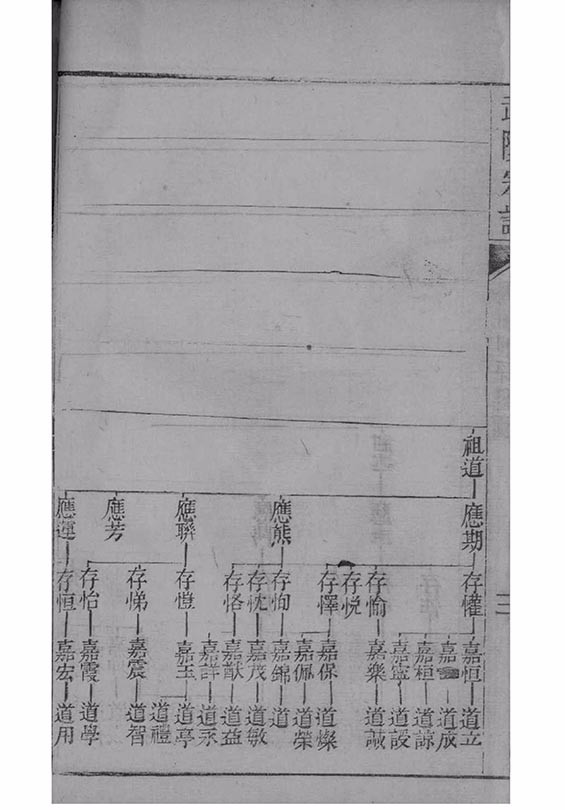 武陵宗譜
三
祖道 應期 存懽 嘉恒 道立
嘉 道成
嘉桓 道諒
嘉寧 道設
存愉 嘉樂 道誠
存悅
存懌 嘉保 道燦
嘉佩 道榮
應熊 存恂 嘉錦 道
存忱 嘉茂 道敏
存恪 嘉猷 道益
嘉詳 道永
應聯 存愷 嘉玉 道亭
道禮
存悌 嘉震 道智
應芳
存怡 嘉霞 道學
應運 存恒 嘉宏 道用